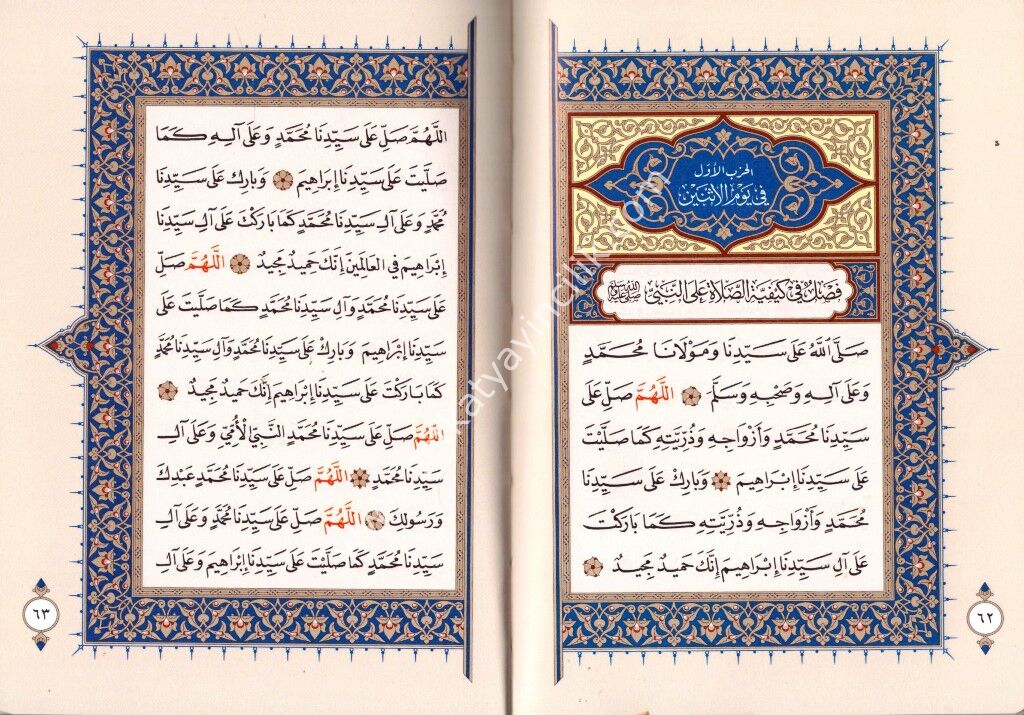 الحزب الأول
في يوم الاثنين
فصل في كيفية الصلاة على النبي ﷺ
صَلَّى اللَّهُ عَلَى سَيِّدِنَا وَمَوْلَانَا مُحَمَّدٍ
وَعَلَى آلِهِ وَصَحْبِهِ وَسَلَّمَ ۞ اللَّهُمَّ صَلِّ عَلَى
سَيِّدِنَا مُحَمَّدٍ وَأَزْوَاجِهِ وَذُرِّيَّتِهِ كَمَا صَلَّيْتَ
عَلَى سَيِّدِنَا إِبْرَاهِيمَ ۞ وَبَارِكْ عَلَى سَيِّدِنَا
مُحَمَّدٍ وَأَزْوَاجِهِ وَذُرِّيَّتِهِ كَمَا بَارَكْتَ
عَلَى آلِ سَيِّدِنَا إِبْرَاهِيمَ إِنَّكَ حَمِيدٌ مَجِيدٌ ۞
٦٢
اللَّهُمَّ صَلِّ عَلَى سَيِّدِنَا مُحَمَّدٍ وَعَلَى آلِهِ كَمَا
صَلَّيْتَ عَلَى سَيِّدِنَا إِبْرَاهِيمَ ۞ وَبَارِكْ عَلَى سَيِّدِنَا
مُحَمَّدٍ وَعَلَى آلِ سَيِّدِنَا مُحَمَّدٍ كَمَا بَارَكْتَ عَلَى آلِ سَيِّدِنَا
إِبْرَاهِيمَ فِي الْعَالَمِينَ إِنَّكَ حَمِيدٌ مَجِيدٌ ۞ اللَّهُمَّ صَلِّ
عَلَى سَيِّدِنَا مُحَمَّدٍ وَآلِ سَيِّدِنَا مُحَمَّدٍ كَمَا صَلَّيْتَ عَلَى
سَيِّدِنَا إِبْرَاهِيمَ وَبَارِكْ عَلَى سَيِّدِنَا مُحَمَّدٍ وَآلِ سَيِّدِنَا مُحَمَّدٍ
كَمَا بَارَكْتَ عَلَى سَيِّدِنَا إِبْرَاهِيمَ إِنَّكَ حَمِيدٌ مَجِيدٌ ۞
اللَّهُمَّ صَلِّ عَلَى سَيِّدِنَا مُحَمَّدٍ النَّبِيِّ الْأُمِّيِّ وَعَلَى آلِ
سَيِّدِنَا مُحَمَّدٍ ۞ اللَّهُمَّ صَلِّ عَلَى سَيِّدِنَا مُحَمَّدٍ عَبْدِكَ
وَرَسُولِكَ ۞ اللَّهُمَّ صَلِّ عَلَى سَيِّدِنَا مُحَمَّدٍ وَعَلَى آلِ
سَيِّدِنَا مُحَمَّدٍ كَمَا صَلَّيْتَ عَلَى سَيِّدِنَا إِبْرَاهِيمَ وَعَلَى آلِ
٦٣
katyayincilik.com